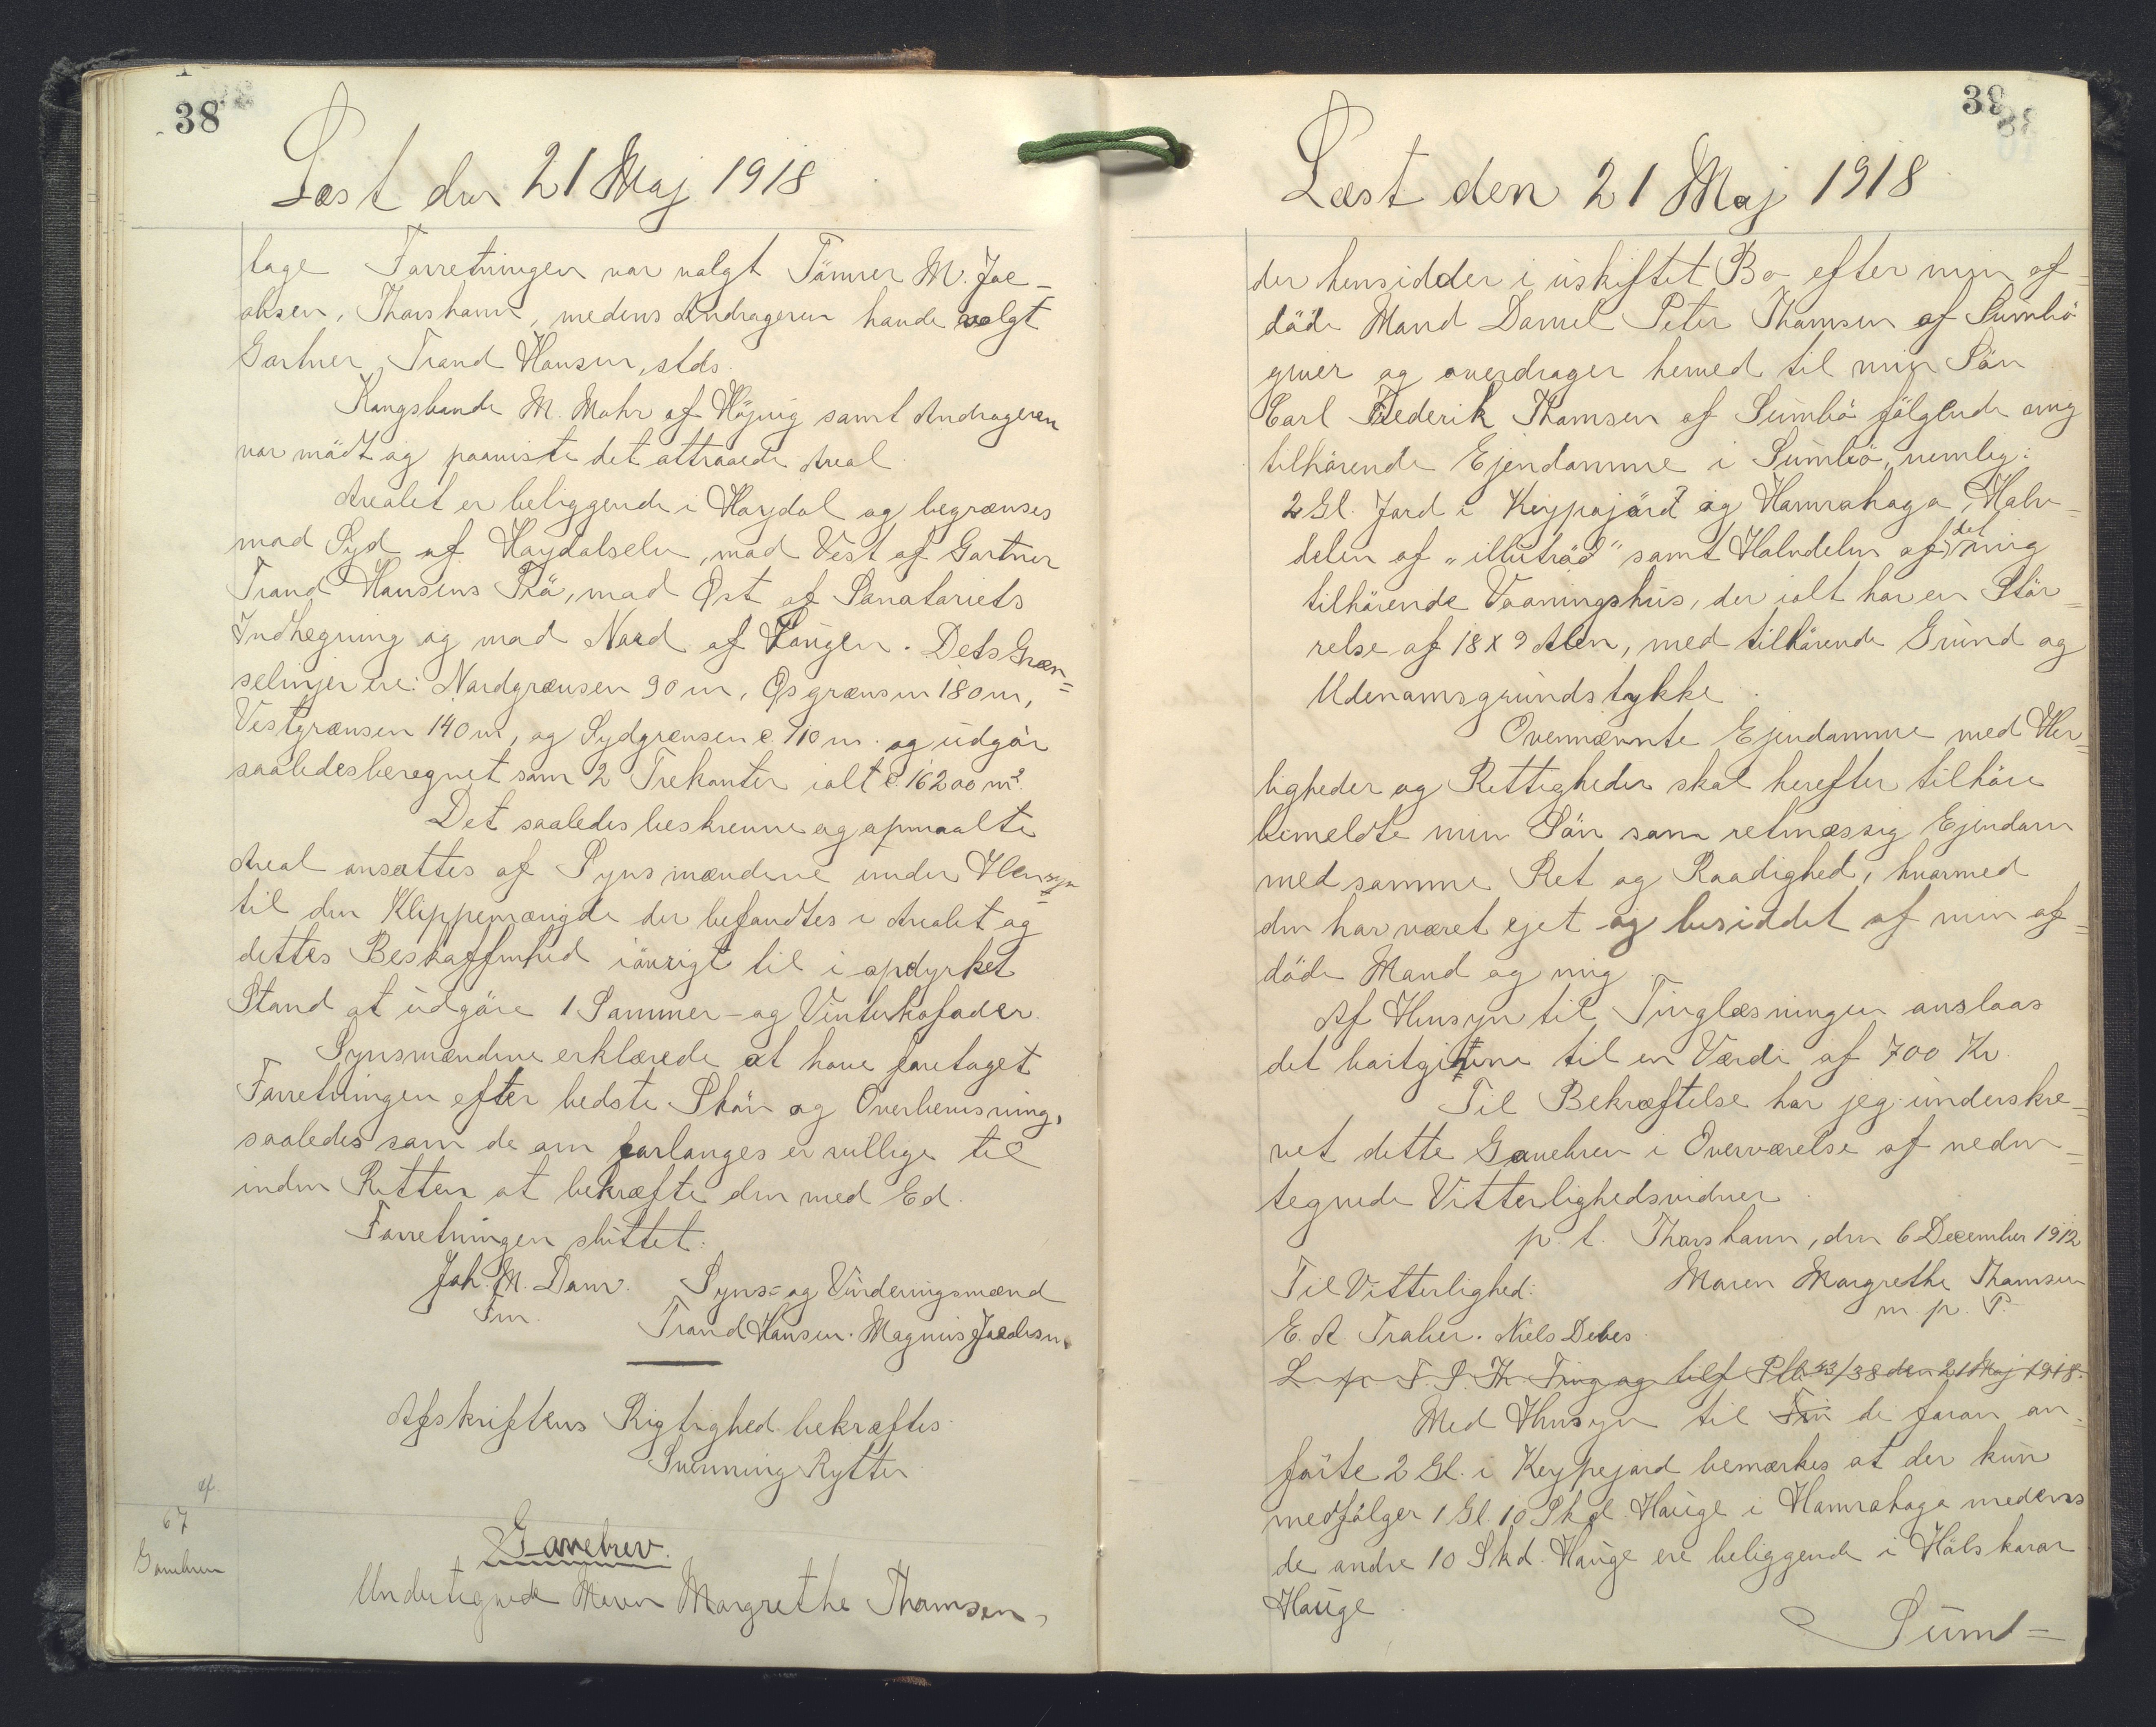 38
Læst den 21 Maj 1918
tage Forretningen var valgt Tömrer M. Jac-
obsen, Thorshavn, medens Andrageren havde valgt
Gartner Trand Hansen, stds.
Kongsbonde M. Mohr af Höjvig samt Andrageren
var mödt og paaviste det attraaede Areal
Arealet er beliggende i Hoydal og begrænses
mod Syd af Hoydalselv, mod Vest af Gartner
Trand Hansens Trä, mod Øst af Sanatoriets
Indhegning og mod Nord af Haugen. Dets Græn=
selinjer ere: Nordgrænsen 90 m, Øsgrænsen 180 m,
Vestgrænsen 140 m, og Sydgrænsen c. 110 m. og udgör
saaledes beregnet som 2 Trekanter ialt c. 16200 m².
Det saaledes beskrevne og opmaalte
Areal ansattes af Synsmændene under Hensyn
til den Klippemængde der befandtes i Arealet og
dettes Beskaffenhed iövrigt til i opdyrket
Stand at udgöre 1 Sommer- og Vinterkofoder.
Synsmændene erklærede at have foretaget
Forretningen efter bedste Skön og Overbevisning,
saaledes som de om forlanges er villige til
inden Retten at bekræfte den med Ed.
Forretningen sluttet.
Joh. M. Dam. Syns= og Vurderingsmænd
Fm. Trand Hansen. Magnus Jacobsen
Afskriftens Rigtighed bekræftes
Svenning Rytter
af
67
Gavebrev
Gavebrev.
Undertegnede Maren Margrethe Thomsen,
39
Læst den 21 Maj 1918
der hensidder i uskiftet Bo efter min af=
döde Mand Daniel Peter Thomsen af Sumbö
giver og overdrager herved til min Sön
Carl Frederik Thomsen af Sumbö fölgende mig
tilhörende Ejendomme i Sumbö, nemlig:
2 Gl. Jord i Keypajörd og Hamrahaga, Halv=
delen af "illutröd" samt Halvdelen af det mig
tilhörende Vaaningshus, der ialt har en Stör=
relse af 18 x 9 Alen, med tilhörende Grund og
Udenomsgrundstykke.
Ovennævnte Ejendomme med Her=
ligheder og Rettigheder skal herefter tilhöre
bemeldte min Sön som retmæssig Ejendom
med samme Ret og Raadighed, hvormed
den har været ejet og besiddet af min af=
döde Mand og mig.
Af Hensyn til Tinglæsningen anslaas
det bortgivne til en Værdi af 700 Kr.
Til Bekræftelse har jeg underskre=
vet dette Gavebrev i Overværelse af neden=
tegnede Vitterlighedsvidner.
p. t. Thorshavn, den 6 December 1912
Til Vitterlighed: Maren Margrethe Thomsen
m. p. P.
E. A. Traber. Niels Debes.
L p F. S. Th Ting og tilf Ptb. 23/38 den 21 Maj 1918.
Med Hensyn til Fm de foran an=
förte 2 Gl. i Keypejord bemærkes at der kun
medfölger 1 Gl. 10 Skd. Hauge i Hamrahaga medens
de andre 10 Skd. Hauge ere beliggende i Hálskorar
Hauge.
Sumb=